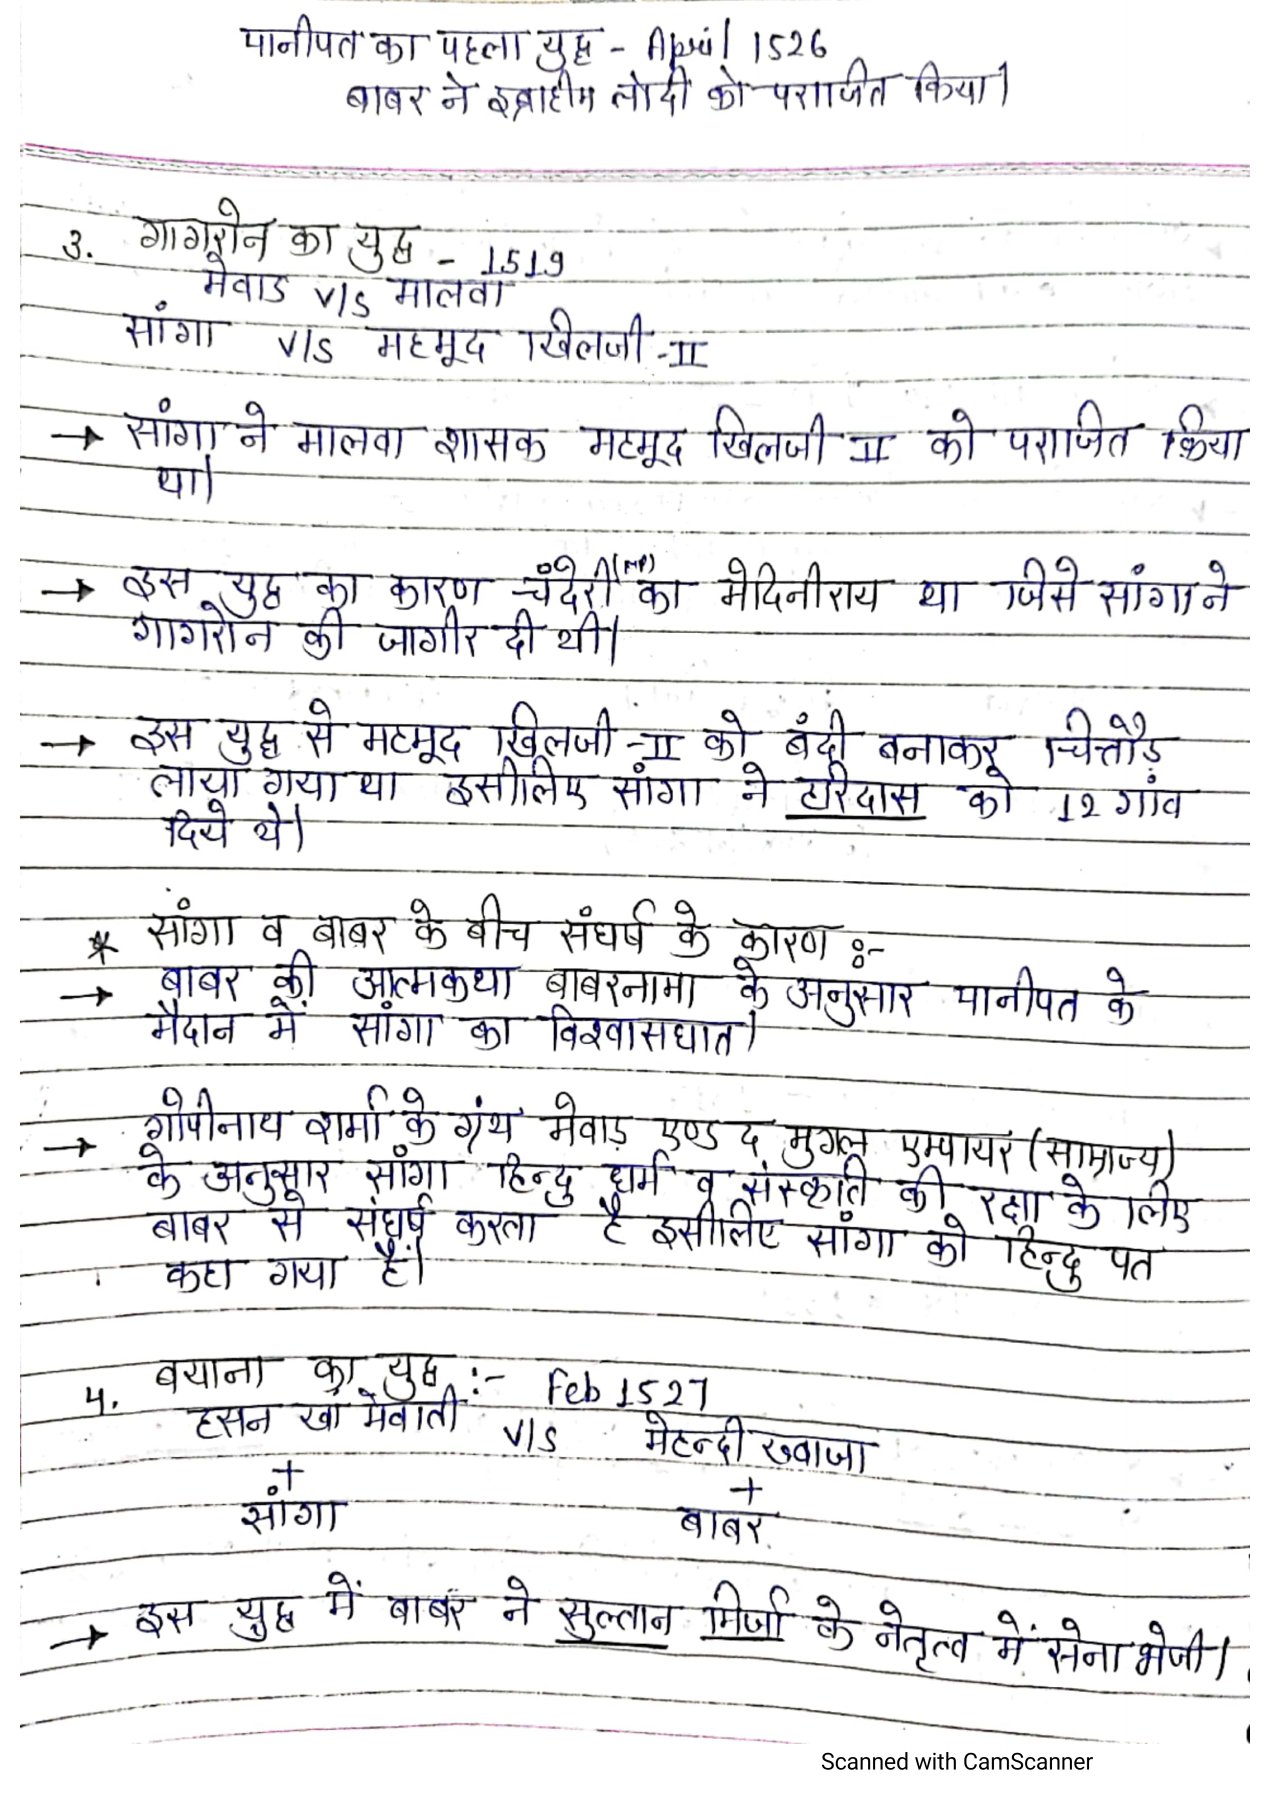 पानीपत का पहला युद्ध - April 1526
बाबर ने इब्राहीम लोदी को पराजित किया।
3. गागरोन का युद्ध - 1519
मेवाड v/s मालवा
सांगा v/s महमूद खिलजी-II
→ सांगा ने मालवा शासक महमूद खिलजी II को पराजित किया
था।
→ इस युद्ध का कारण चंदेरी (MP) का मेदिनीराय था जिसे सांगा ने
गागरोन की जागीर दी थी।
→ इस युद्ध से महमूद खिलजी-II को बंदी बनाकर चित्तौड़
लाया गया था इसीलिए सांगा ने हरिदास को 12 गांव
दिये थे।
* सांगा व बाबर के बीच संघर्ष के कारण :-
→ बाबर की आत्मकथा बाबरनामा के अनुसार पानीपत के
मैदान में सांगा का विश्वासघात।
→ गोपीनाथ शर्मा के ग्रंथ मेवाड़ एण्ड द मुगल एम्पायर (साम्राज्य)
के अनुसार सांगा हिन्दु धर्म व संस्कृति की रक्षा के लिए
बाबर से संघर्ष करता है इसीलिए सांगा को हिन्दु पत
कहा गया है।
4. बयाना का युद्ध :- Feb 1527
हसन खां मेवाती v/s मेहन्दी ख्वाजा
+ +
सांगा बाबर
→ इस युद्ध में बाबर ने सुल्तान मिर्जा के नेतृत्व में सेना भेजी।
Scanned with CamScanner